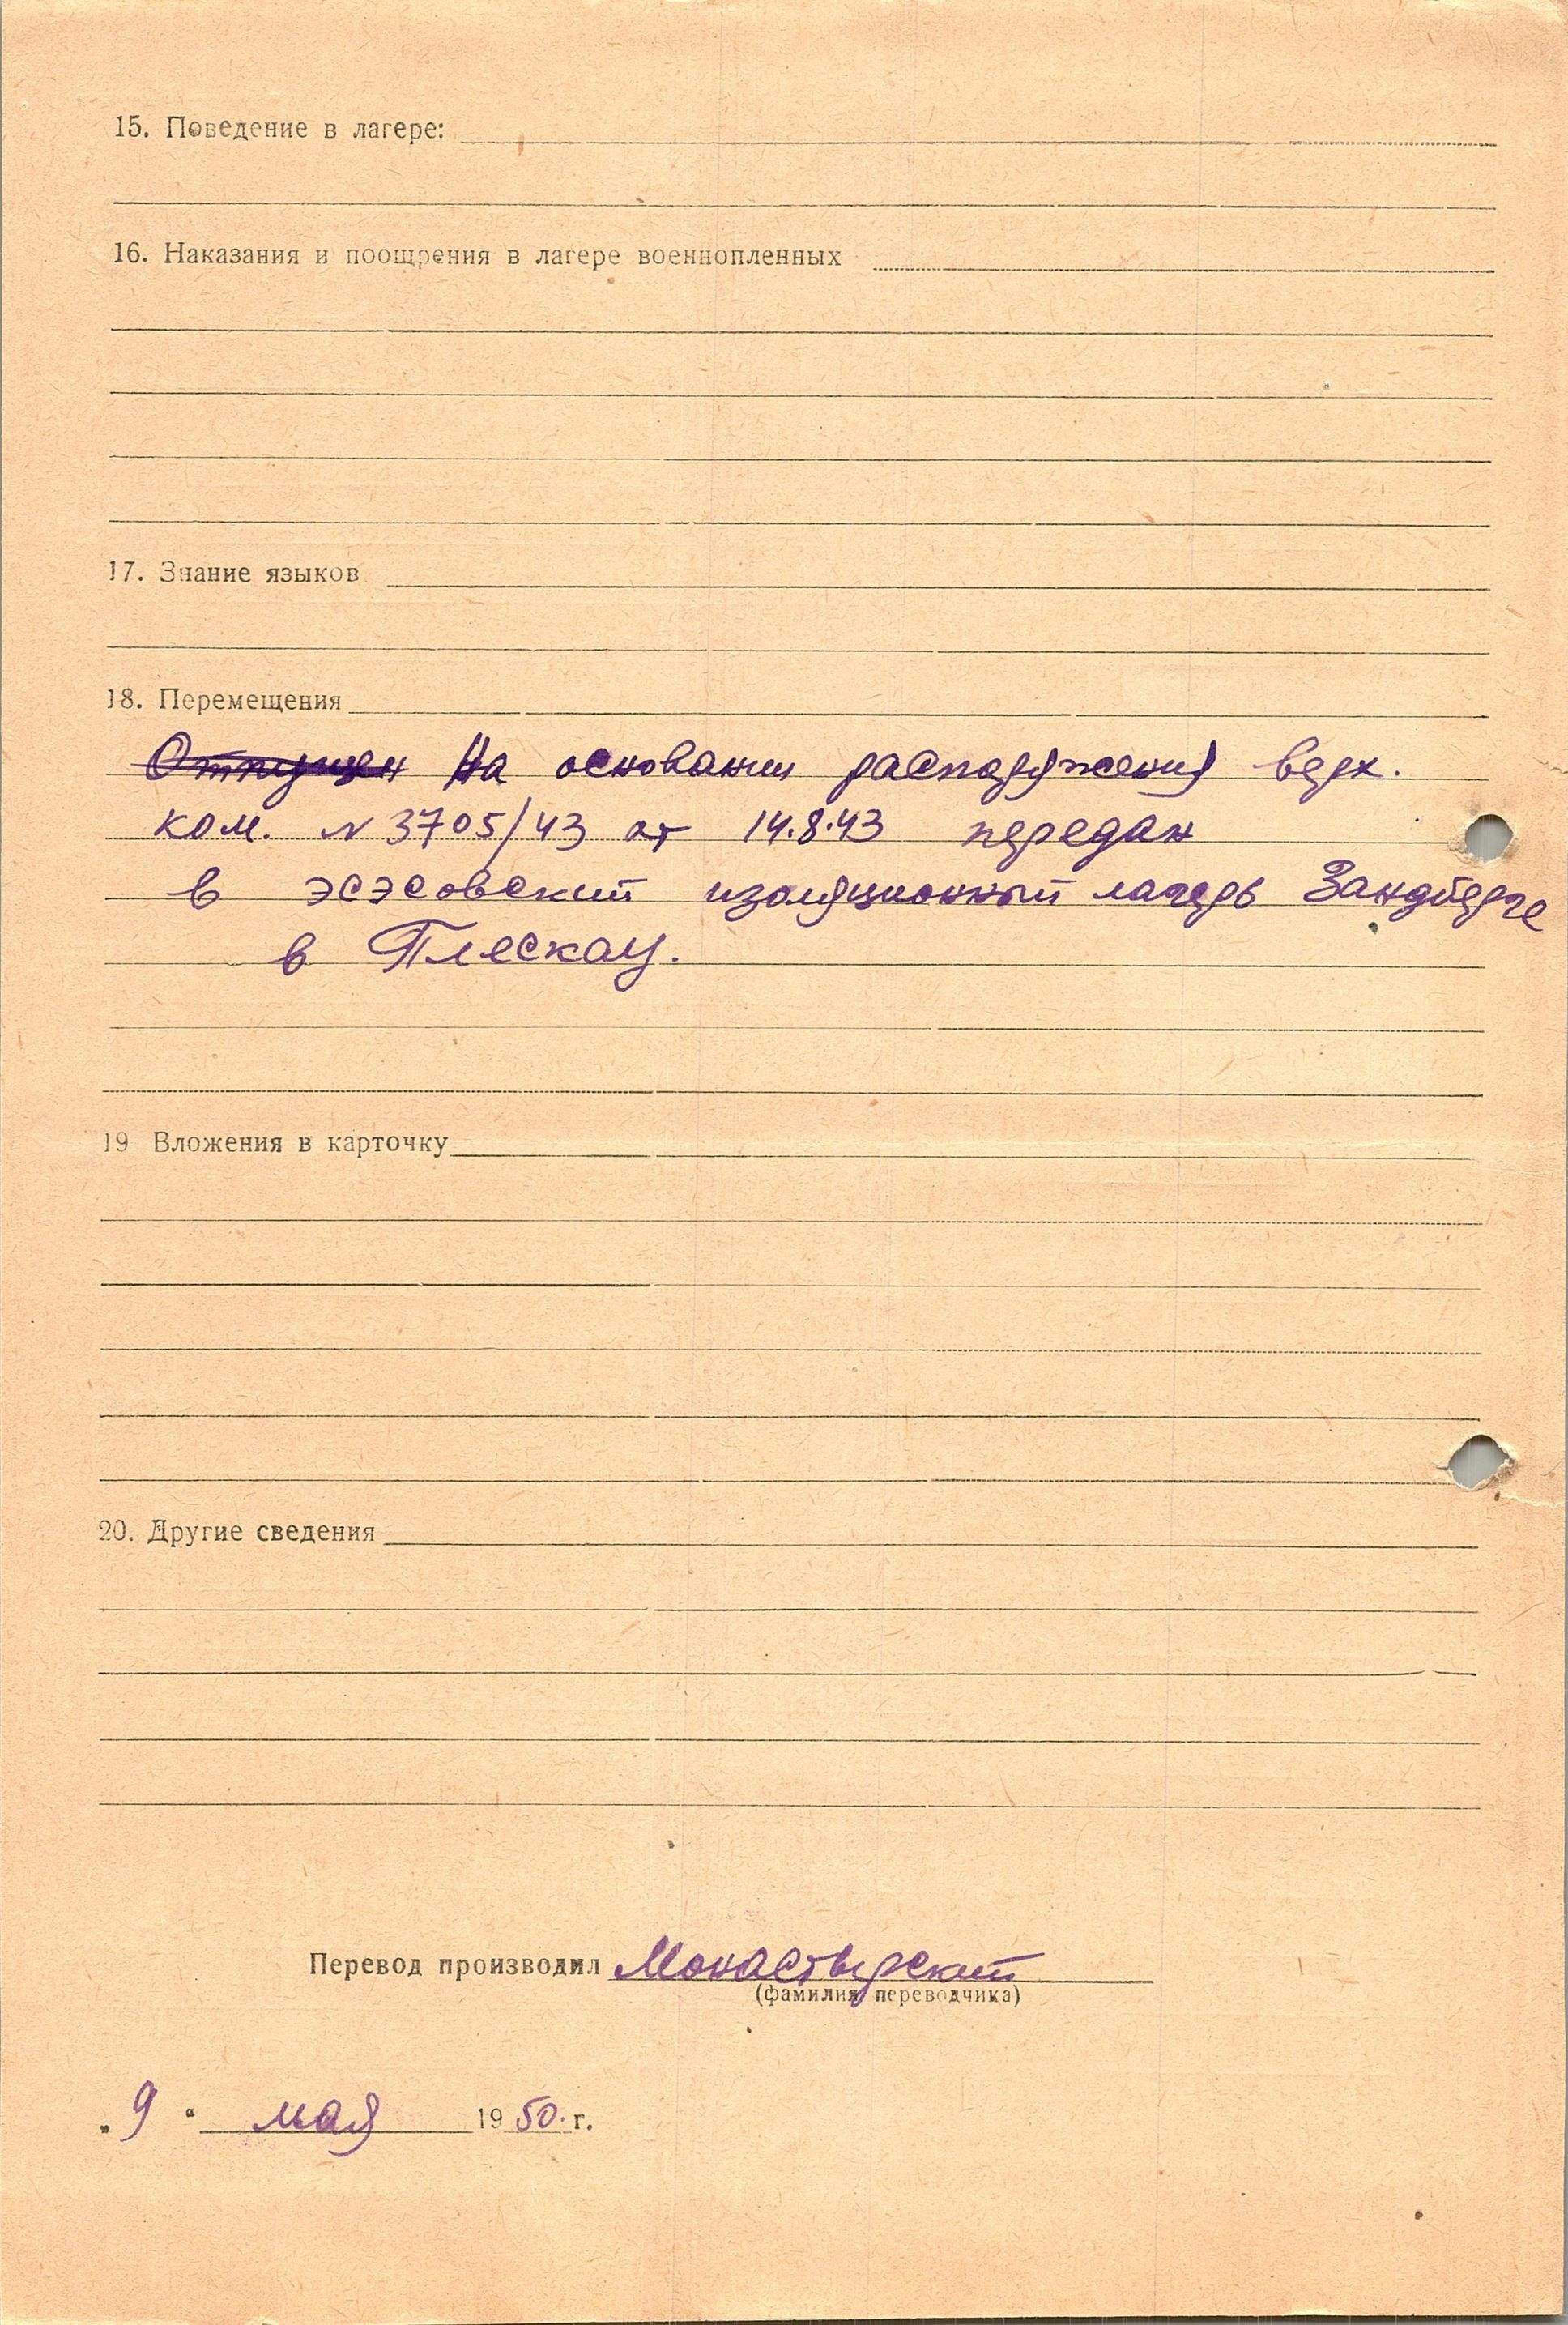 15. Поведение в лагере:
16. Наказания и поощрения в лагере военнопленных
17. Знание языков
18. Перемещения
Отпущен На основании распоряжения верх.
ком. N 3705/43 от 14.8.43 передан
в эсэсовский изоляционный лагерь Зандберге
в Плескау.
19 Вложения в карточку
20. Другие сведения
Перевод производил Монастырский
(фамилия переводчика)
„9“ мая 1950. г.